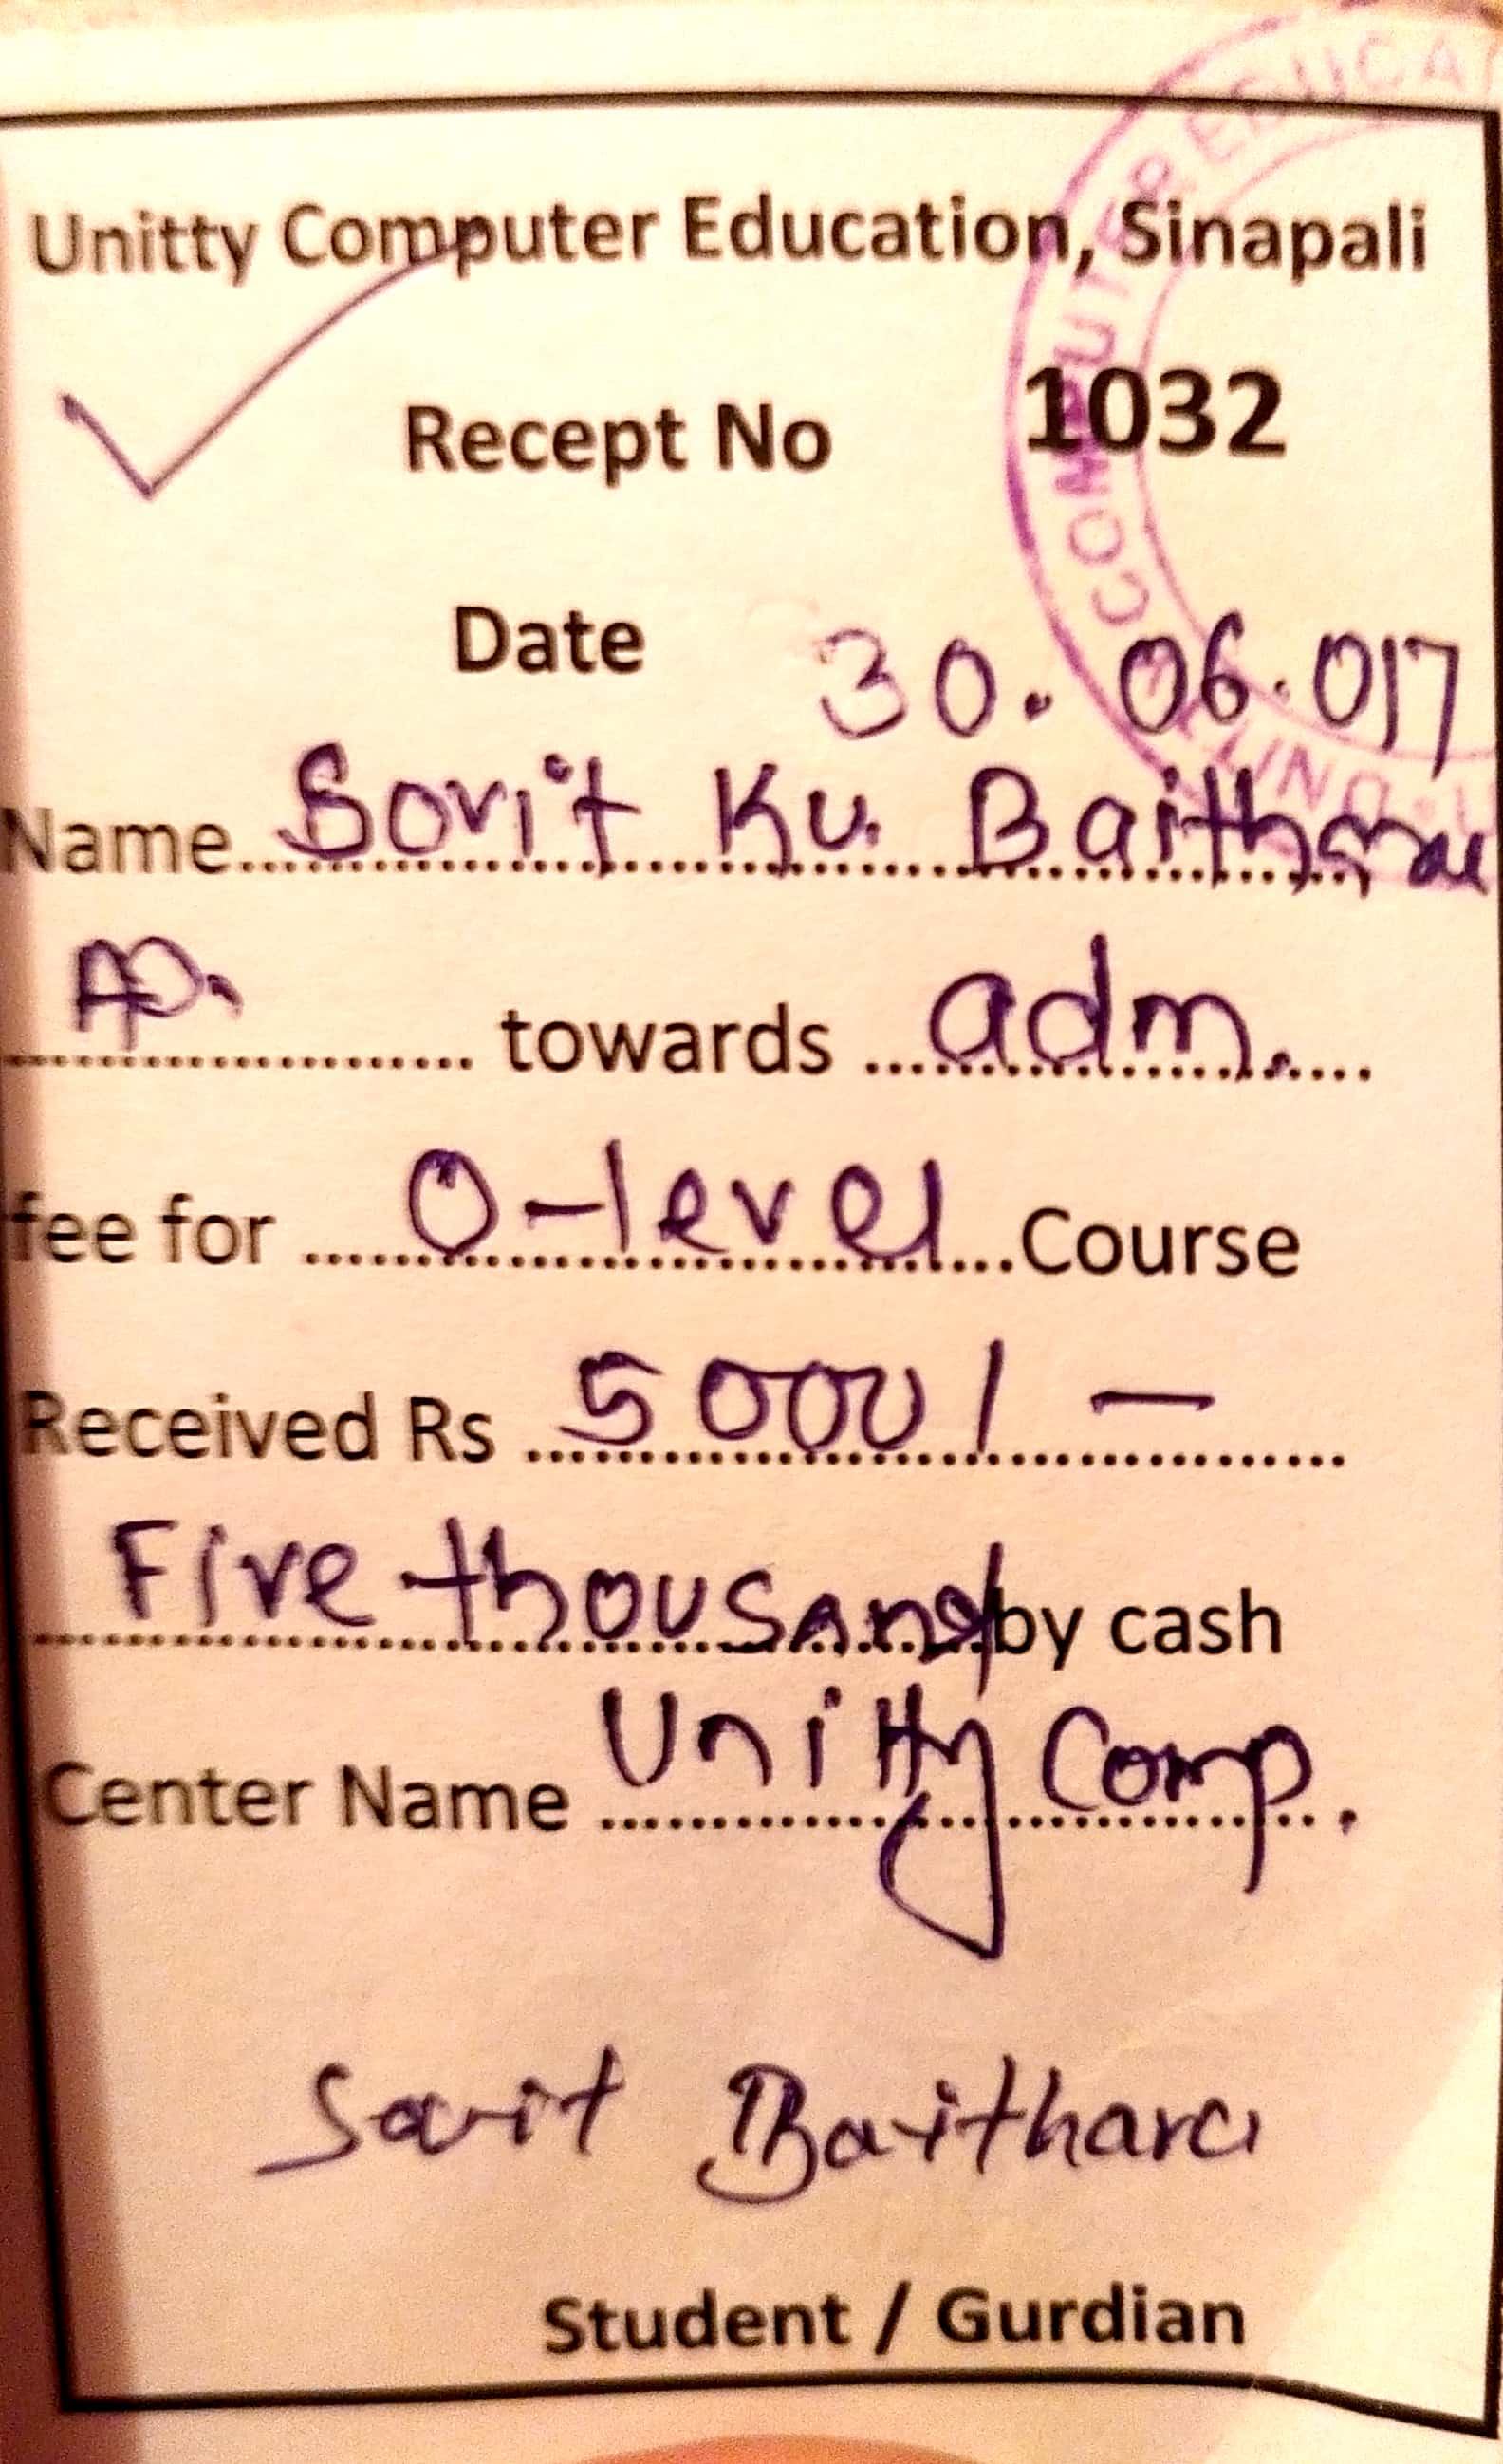 Unitty Computer Education, Sinapali
Recept No 1032
Date 30.06.017
Name Sovit Ku. Baithmae
towards adm.
fee for O-level Course
Received Rs 5000/-
Five thousand by cash
Center Name Unitty Comp.
Savit Baithara
Student / Gurdian
COMPUTER EDUCA